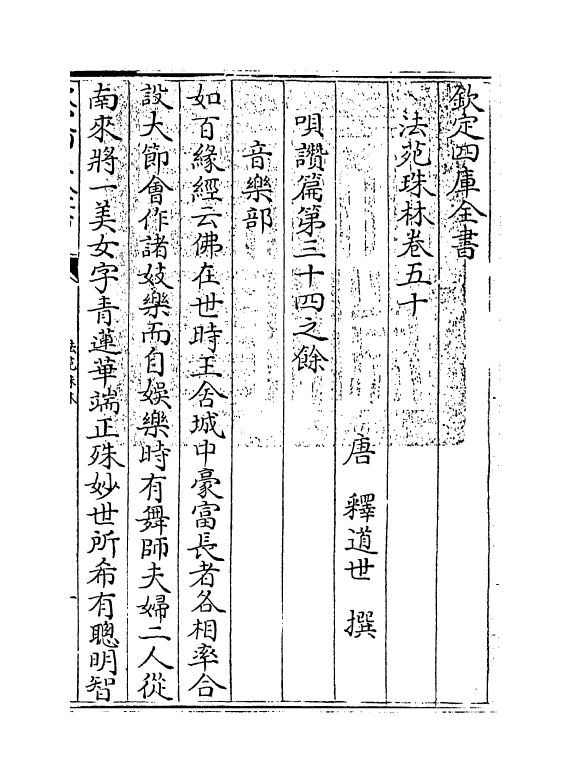 欽定四庫全書
法苑珠林卷五十
唐 釋道世 撰
唄讚篇第三十四之餘
音樂部
如百緣經云佛在世時王舍城中豪富長者各相率合
設大節會作諸妓樂而自娛樂時有舞師夫婦二人從
南來將一美女字青蓮華端正殊妙世所希有聰明智
法苑珠林
一